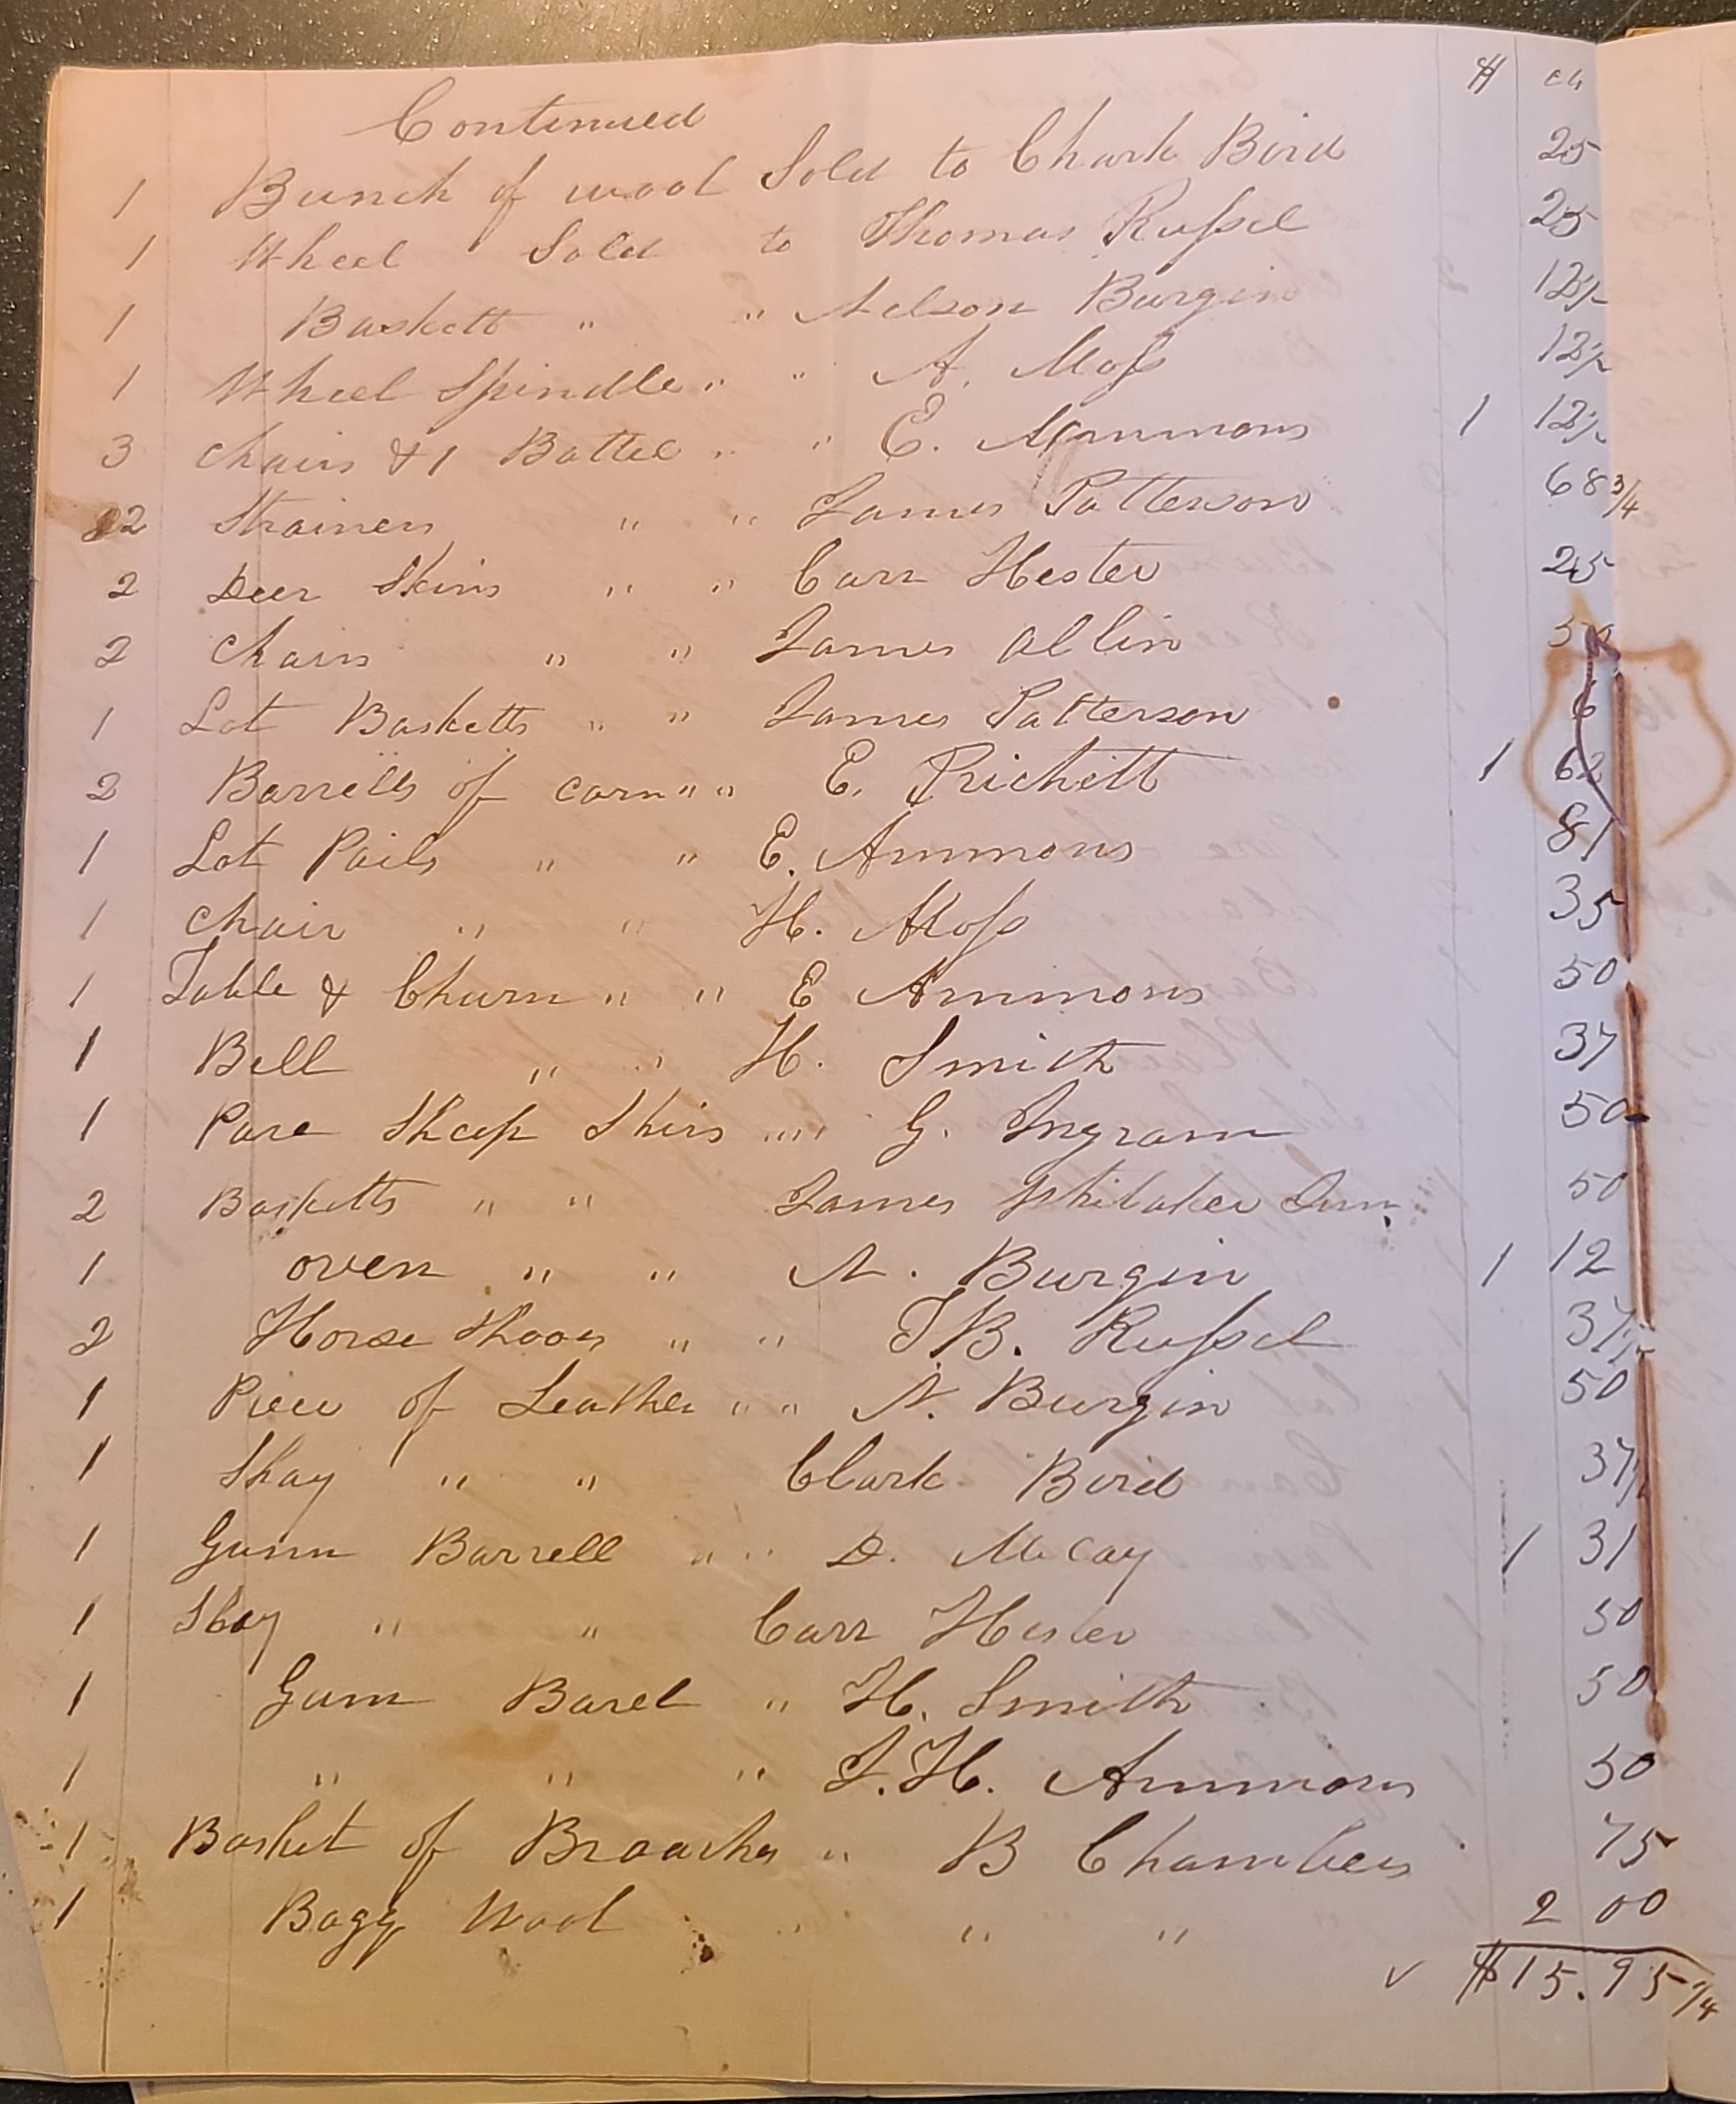 $ cts
Continued
1 Bunch of wool Sold to Chark Bird 25
1 Wheel Sold to Thomas Russel 25
1 Baskett " " Nelson Burgin 12½
1 Wheel Spindle " " A. Moss 12½
3 Chairs & 1 Battel " " E. Ammons 1 12½
2 Strainers " " James Patterson 68 3/4
2 Deer Skins " " Carr Hester 25
2 Chairs " " James Allin 50
1 Lot Basketts " " James Patterson 6
2 Barrells of corn " " E. Prichett 1 62
1 Lot Pails " " E. Ammons 81
1 Chair " " H. Moss 35
1 Table & Churn " " E Ammons 50
1 Bell " " H. Smith 37
1 Pare Sheep Skins " " G. Ingram 50
2 Basketts " " James Whitaker Jun. 50
1 oven " " N. Burgin 1 12
2 Horse Shoos " " T B. Russel 37½
1 Piece of Leather " " N. Burgin 50
1 Shay " " Clark Bird 37½
1 Gunn Barrell " " D. McCay 1 31
1 Shay " " Carr Hester 50
1 Gum Barel " H. Smith 50
1 " " " J. H. Ammons 50
1 Basket of Broaches " B Chambers 75
1 Bagg Wool " " " 2 00
✓ $15.95 1/4